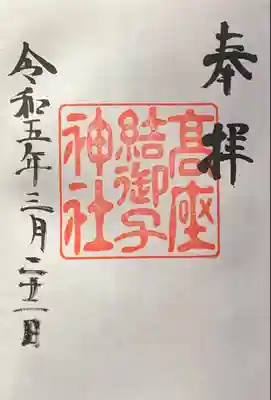 奉拝
髙座
結御子
神社
令和五年三月二十一日